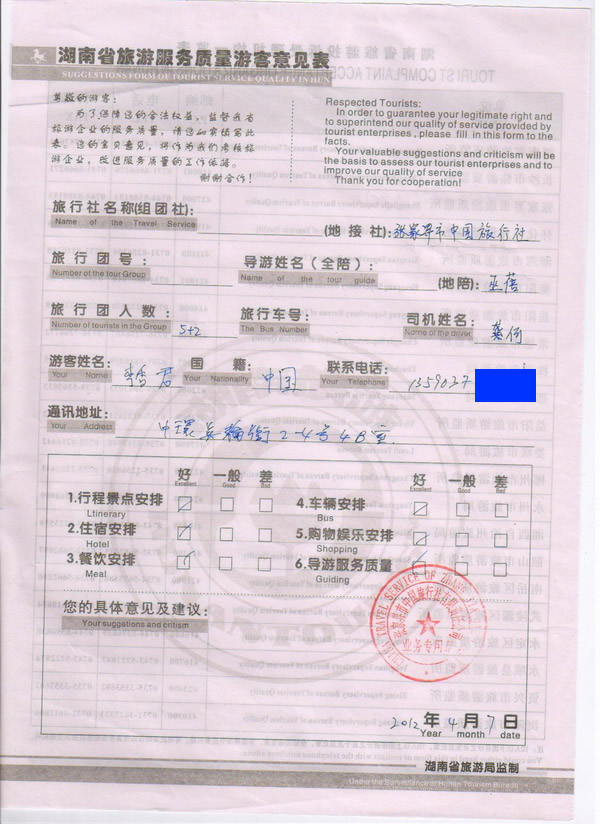 湖南省旅游服务质量游客意见表
SUGGESTIONS FORM OF TOURIST SERVICE QUALITY IN HUN
尊敬的游客:
为了保障您的合法权益,监督我省
旅游企业的服务质量,请您如实填写此
表。您的宝贵意见,将作为我们考核旅
游企业,改进服务质量的工作依据。
谢谢合作!
Respected Tourists:
In order to guarantee your legitimate right and
to superintend our quality of service provided by
tourist enterprises , please fill in this form to the
facts.
Your valuable suggestions and criticism will be
the basis to assess our tourist enterprises and to
improve our quality of service
Thank you for cooperation!
旅行社名称(组团社): (地接社): 张家界市中国旅行社
Name of the Travel Service
旅行团号: 导游姓名(全陪): (地陪):
Number of the tour Group Name of the tour guide
旅行团人数: 5+2 旅行车号: 司机姓名:
Number of tourists in the Group The Bus Number Name of the driver
游客姓名: 国籍: 中国 联系电话: 1359037
Your Name Your Nationality Your Telephone
通讯地址: 中環 街2-4号4B室
Your Address
好 一般 差 好 一般 差
Excellent Good Bad Excellent Good Bad
1.行程景点安排 4.车辆安排
Ltinerary Bus
2.住宿安排 5.购物娱乐安排
Hotel Shopping
3.餐饮安排 6.导游服务质量
Meal Guiding
您的具体意见及建议:
Your suggestions and critism
业务专用
2012年4月7日
Year month date
湖南省旅游局监制
Under the Surveillance of Hunan Tourism Bureau